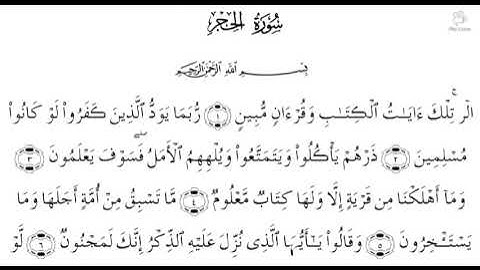 سُورَةُ الحِجْرِ
بِسْمِ اللَّهِ الرَّحْمَٰنِ الرَّحِيمِ
الٓر ۚ تِلْكَ ءَايَٰتُ ٱلْكِتَٰبِ وَقُرْءَانٍ مُّبِينٍ ١ رُّبَمَا يَوَدُّ ٱلَّذِينَ كَفَرُوا۟ لَوْ كَانُوا۟
مُسْلِمِينَ ٢ ذَرْهُمْ يَأْكُلُوا۟ وَيَتَمَتَّعُوا۟ وَيُلْهِهِمُ ٱلْأَمَلُ ۖ فَسَوْفَ يَعْلَمُونَ ٣
وَمَآ أَهْلَكْنَا مِن قَرْيَةٍ إِلَّا وَلَهَا كِتَابٌ مَّعْلُومٌ ٤ مَّا تَسْبِقُ مِنْ أُمَّةٍ أَجَلَهَا وَمَا
يَسْتَـْٔخِرُونَ ٥ وَقَالُوا۟ يَٰٓأَيُّهَا ٱلَّذِى نُزِّلَ عَلَيْهِ ٱلذِّكْرُ إِنَّكَ لَمَجْنُونٌ ٦ لَّوْ